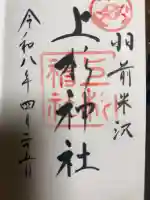 羽前米沢
上杉神社
令和八年四月二五日